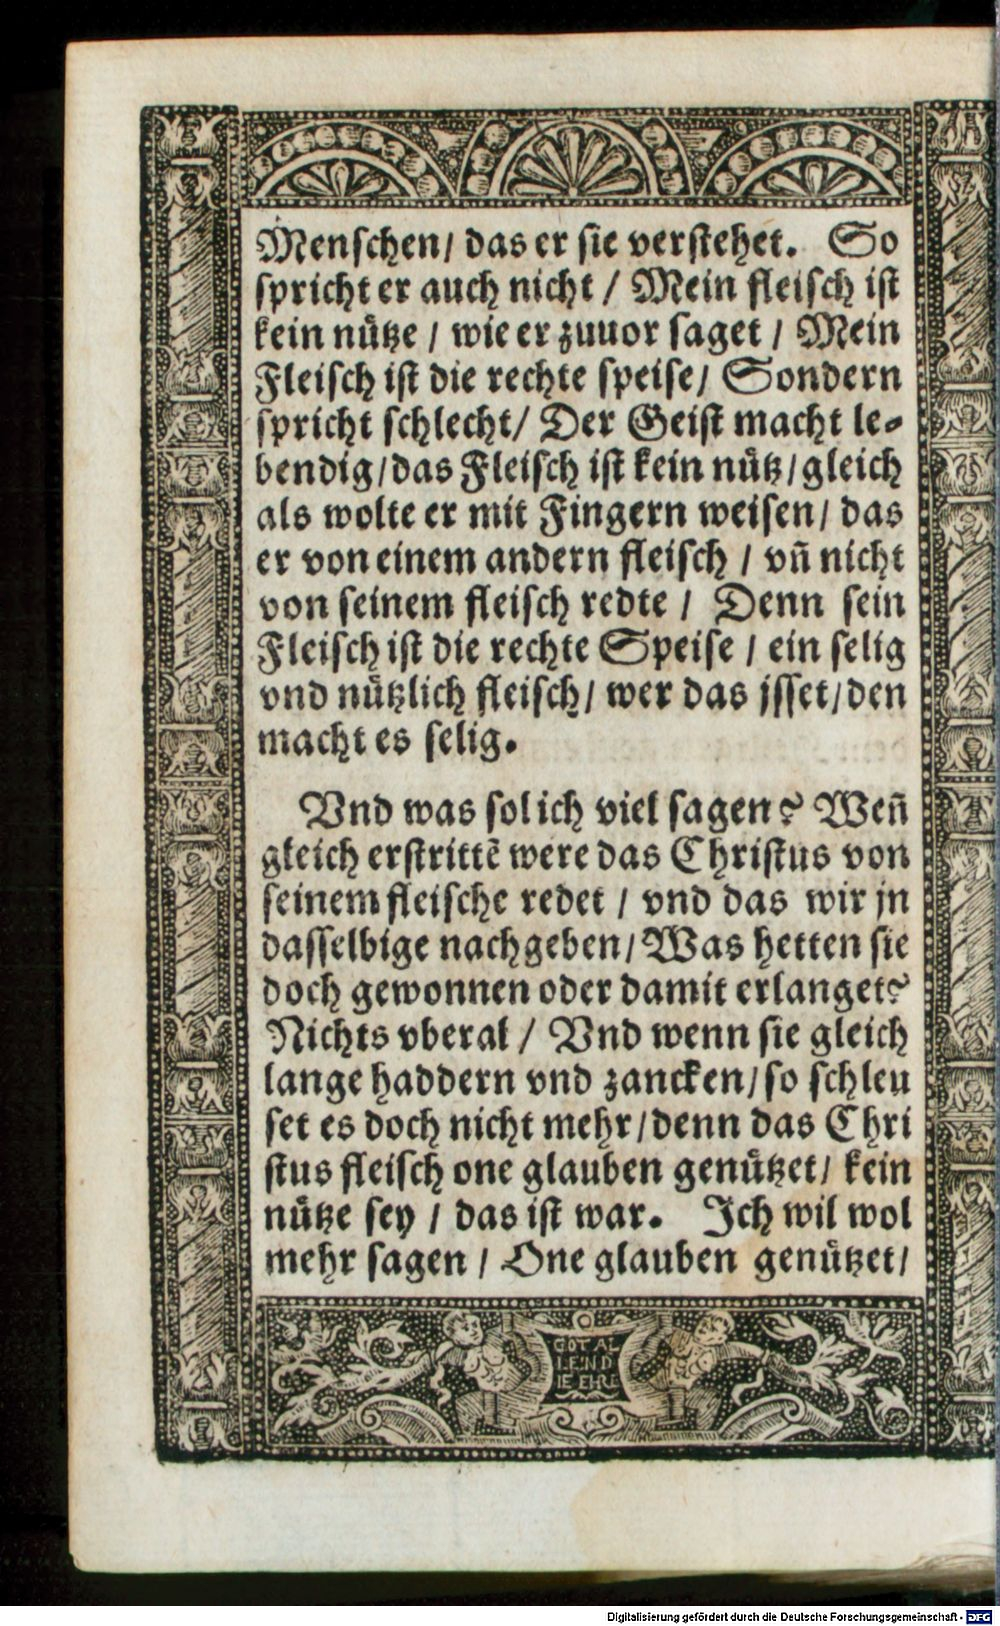 Menschen/ das er sie verstehet. So
spricht er auch nicht / Mein fleisch ist
kein nütze / wie er zuuor saget / Mein
Fleisch ist die rechte speise/ Sondern
spricht schlecht/ Der Geist macht le⸗
bendig/das Fleisch ist kein nütz/gleich
als wolte er mit Fingern weisen/ das
er von einem andern fleisch / vñ nicht
von seinem fleisch redte / Denn sein
Fleisch ist die rechte Speise / ein selig
vnd nützlich fleisch/ wer das jsset/den
macht es selig.
Vnd was sol ich viel sagen? Weñ
gleich erstrittẽ were das Christus von
seinem fleische redet / vnd das wir jn
dasselbige nachgeben/ Was hetten sie
doch gewonnen oder damit erlanget?
Nichts vberal / Vnd wenn sie gleich
lange haddern vnd zancken/so schleu
set es doch nicht mehr/denn das Chri
stus fleisch one glauben genützet/ kein
nütze sey / das ist war. Ich wil wol
mehr sagen / One glauben genützet/
GOT AL
LEND
IE EHRE
Digitalisierung gefördert durch die Deutsche Forschungsgemeinschaft - DFG